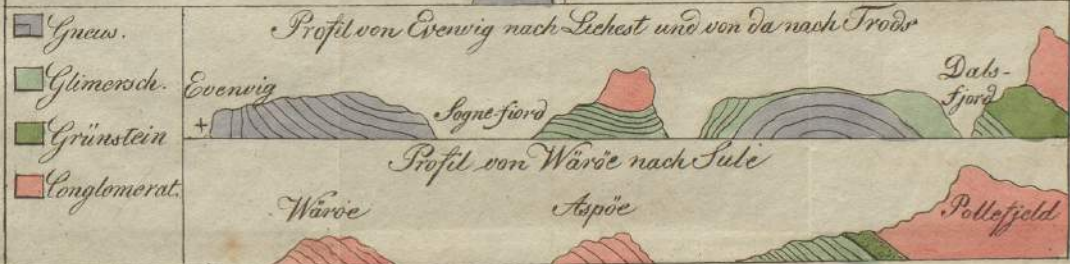 Gneus.
Glimersch.
Grünstein
Conglomerat.
Profil von Evenvig nach Liehest und von da nach Trods
Evenvig
Sogne-fiord
Dals-
fjord
+
Profil von Wäröe nach Sule
Wäröe
Aspöe
Pollefjeld